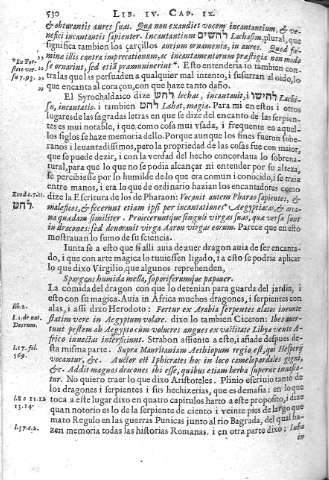 530 LIB. IV. CAP. IX.
& obturantis aures suas. Qua non exaudiet vocem incantantium, & ve-
nefici incantantis sapienter. Incantantium לחשים Lachasim. plural, que
significa tambien los çarçillos antium ornamenta, in aures. Quod fœ-
mina illis contra imprecationem, & incantamentorum præstigia non modo
se ornarint, sed etiã præmunierint. Esto entenderia tambien con-
tra las que los persuaden a qualquier mal intento, i susurran al oido, lo
que encanta al coraçon, con que haze tanto daño.
El Syrochaldaico dize לחש lechas, incantauit, i לחישו Lachi-
su, incantatis. i tambien להט Lahat, magia. Para mi en estos i otros
lugares de las sagradas letras en que se dize del encanto de las serpien-
tes es mui notable, i que, como cosa mui vsada, i frequente en aquel-
los siglos se haze memoria dello. Porque aunque los fines fueron sobe-
ranos i leuantadissimos, pero la propiedad de las cosas fue con maior,
que se puede dezir, i con la verdad del hecho concordaria lo sobrena-
tural, para que lo que no se podia alcançar ni entender por su alteza,
se percibiesse por lo humilde de lo que era comun i conocido, i se traia
entre manos, i era lo que de ordinario hazian los encantadores como
dize la Escritura de los de Pharaon: Vocauit autem Pharao sapientes, &
maleficos, & fecerunt etiam ipsi per incantationes Aegyptiacas, & arca-
na quædam similiter. Proieceruntque singuli virgas suas, quæ versæ sunt
in dracones: sed deuorauit virga Aaron virgas eorum. Parece que en esto
mostrauan lo sumo de su sciencia.
Iunta se a esto que si alli auia de auer dragon auia de ser encanta-
do, i que con arte magica lo tuuiessen ligado, i a esto se podria aplicar
lo que dixo Virgilio, que algunos reprehenden,
Spargens humida mella, soporiferumque papauer.
La comida del dragon con que lo detenian para guarda del jardin, i
esto con su magica. Auia en Africa muchos dragones, i serpientes con
alas, i assi dixo Herodoto: Fertur ex Arabia serpentes alatos ineunte
statim vere in Aegyptum volare. dixo lo tambien Ciceron: Ibes auer-
tunt pestem ab Aegypto cum volucres angues ex vastitate Libyæ vento Afri-
co inuectas interficiunt. Strabon assiente a esto, i añade despues de-
sta misma parte. Supra Mauritaniam Aethiopum regio est, qui Hesperij
vocantur, &c. Auctor est Iphicrates hic in loco camelopardales gigni,
&c. Addit magnos dracones ibi esse, quibus etiam herba superne innasca-
tur. No quiero traer lo que dixo Aristoteles. Plinio escriuio tanto de
los dragones i serpientes i sus hechizerias, que es demasia: en lo que
toca a este lugar dixo en quatro capitulos harto a este proposito, i dize
quan notorio es lo de la serpiente de ciento i veinte pies de largo que
mato Regulo en las guerras Punicas junto al rio Bagrada, del qual ha-
zen memoria todas las historias Romanas. i en otra parte dixo; Iuba
in